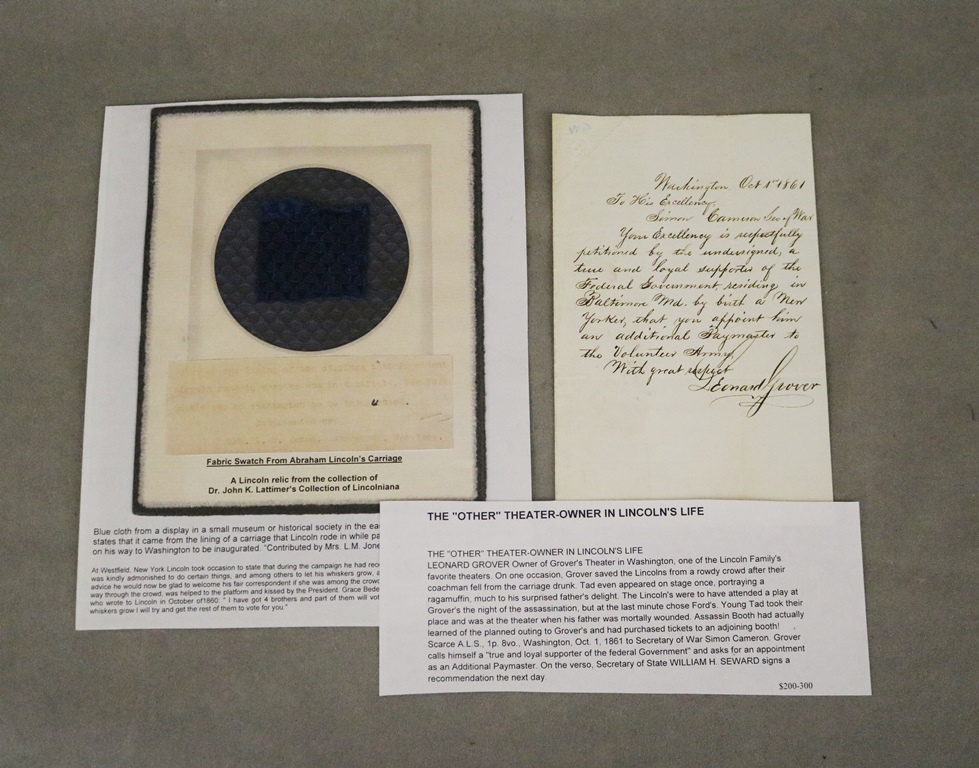 Fabric Swatch From Abraham Lincoln's Carriage
A Lincoln relic from the collection of
Dr. John K. Lattimer's Collection of Lincolniana
Blue cloth from a display in a small museum or historical society in the ea
states that it came from the lining of a carriage that Lincoln rode in while pa
on his way to Washington to be inaugurated. "Contributed by Mrs. L.M. Jone
At Westfield, New York Lincoln took occasion to state that during the campaign he had rec
was kindly admonished to do certain things, and among others to let his whiskers grow,
advice he would now be glad to welcome his fair correspondent if she was among the crow
way through the crowd, was helped to the platform and kissed by the President. Grace Bede
who wrote to Lincoln in October of1860: " I have got 4 brothers and part of them will vot
whiskers grow I will try and get the rest of them to vote for you."
Washington Oct 1st 1861
To His Excellency,
Simon Cameron Sec of War
Your Excellency is respectfully
petitioned by the undersigned, a
true and loyal supporter of the
Federal Government, residing in
Baltimore Md. by birth a New
Yorker, that you appoint him
an additional Paymaster to
the Volunteer Army,
With great respect
Leonard Grover
THE "OTHER" THEATER-OWNER IN LINCOLN'S LIFE
THE "OTHER" THEATER-OWNER IN LINCOLN'S LIFE
LEONARD GROVER Owner of Grover's Theater in Washington, one of the Lincoln Family's
favorite theaters. On one occasion, Grover saved the Lincolns from a rowdy crowd after their
coachman fell from the carriage drunk. Tad even appeared on stage once, portraying a
ragamuffin, much to his surprised father's delight. The Lincoln's were to have attended a play at
Grover's the night of the assassination, but at the last minute chose Ford's. Young Tad took their
place and was at the theater when his father was mortally wounded. Assassin Booth had actually
learned of the planned outing to Grover's and had purchased tickets to an adjoining booth!
Scarce A.L.S., 1p. 8vo., Washington, Oct. 1, 1861 to Secretary of War Simon Cameron. Grover
calls himself a "true and loyal supporter of the federal Government" and asks for an appointment
as an Additional Paymaster. On the verso, Secretary of State WILLIAM H. SEWARD signs a
recommendation the next day.
$200-300